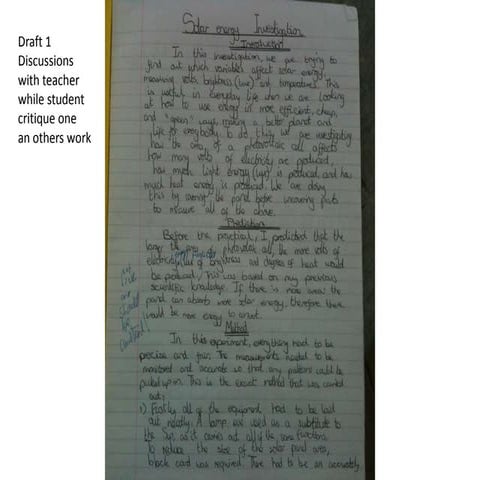 Draft 1
Discussions
with teacher
while student
critique one
an others work
Solar energy Investigation
Introduction
In this investigation, we are trying to
find out which variables affect solar energy,
measuring volts, brightness (lux) and temperatures. This
is useful in everyday life when we are looking
at how to use energy in more efficient, cheap,
and "green" ways, making a better planet and
life for everybody. To do this, we are investigating
how the area of a photovoltaic cell affects
how many volts of electricity are produced,
how much light energy (lux) is produced, and how
much heat energy is produced. We are doing
this by covering the panel before uncovering parts
to measure all of the above.
Prediction
Before the practical, I predicted that the
larger the area of photovoltaic cell, the more volts of
electricity, lux of brightness and degrees of heat would
be produced. This was based on my previous
scientific knowledge. If there is more area the
panel can absorb more solar energy, therefore there
would be more energy to convert.
Method
In this experiment, everything had to be
precise and fair. The measurements needed to be
monitored and accurate so that any patterns could be
picked up on. This is the exact method that was carried
out:
1) Firstly all of the equipment had to be laid
out neatly. A lamp was used as a substitute to
the Sun, as it carries out all of the same functions.
To reduce the size of the solar panel area,
black card was required. There had to be an accurately